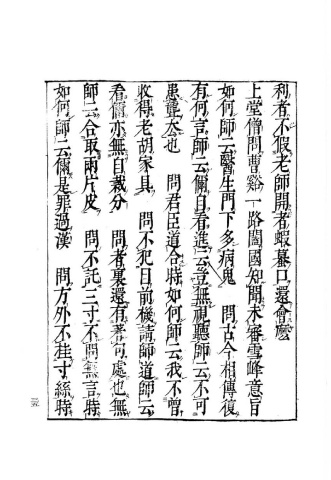 利者不假老師開者蝦蟇口還會麼
上堂僧問曹谿一路闔國知聞未審雪峰意旨
如何師云醫生門下多病鬼　問古今相傳復
有何言師云儞自看進云豈無視聽師云不可
患聾去也　問君臣道合時如何師云我不曾
收得老胡家具　問不犯日前機請師道師云
看儞亦無自裁分　問者裏還有著可處也無
師云合取兩片皮　問不託三寸不問無言時
如何師云儞是罪過漢　問方外不挂寸絲時